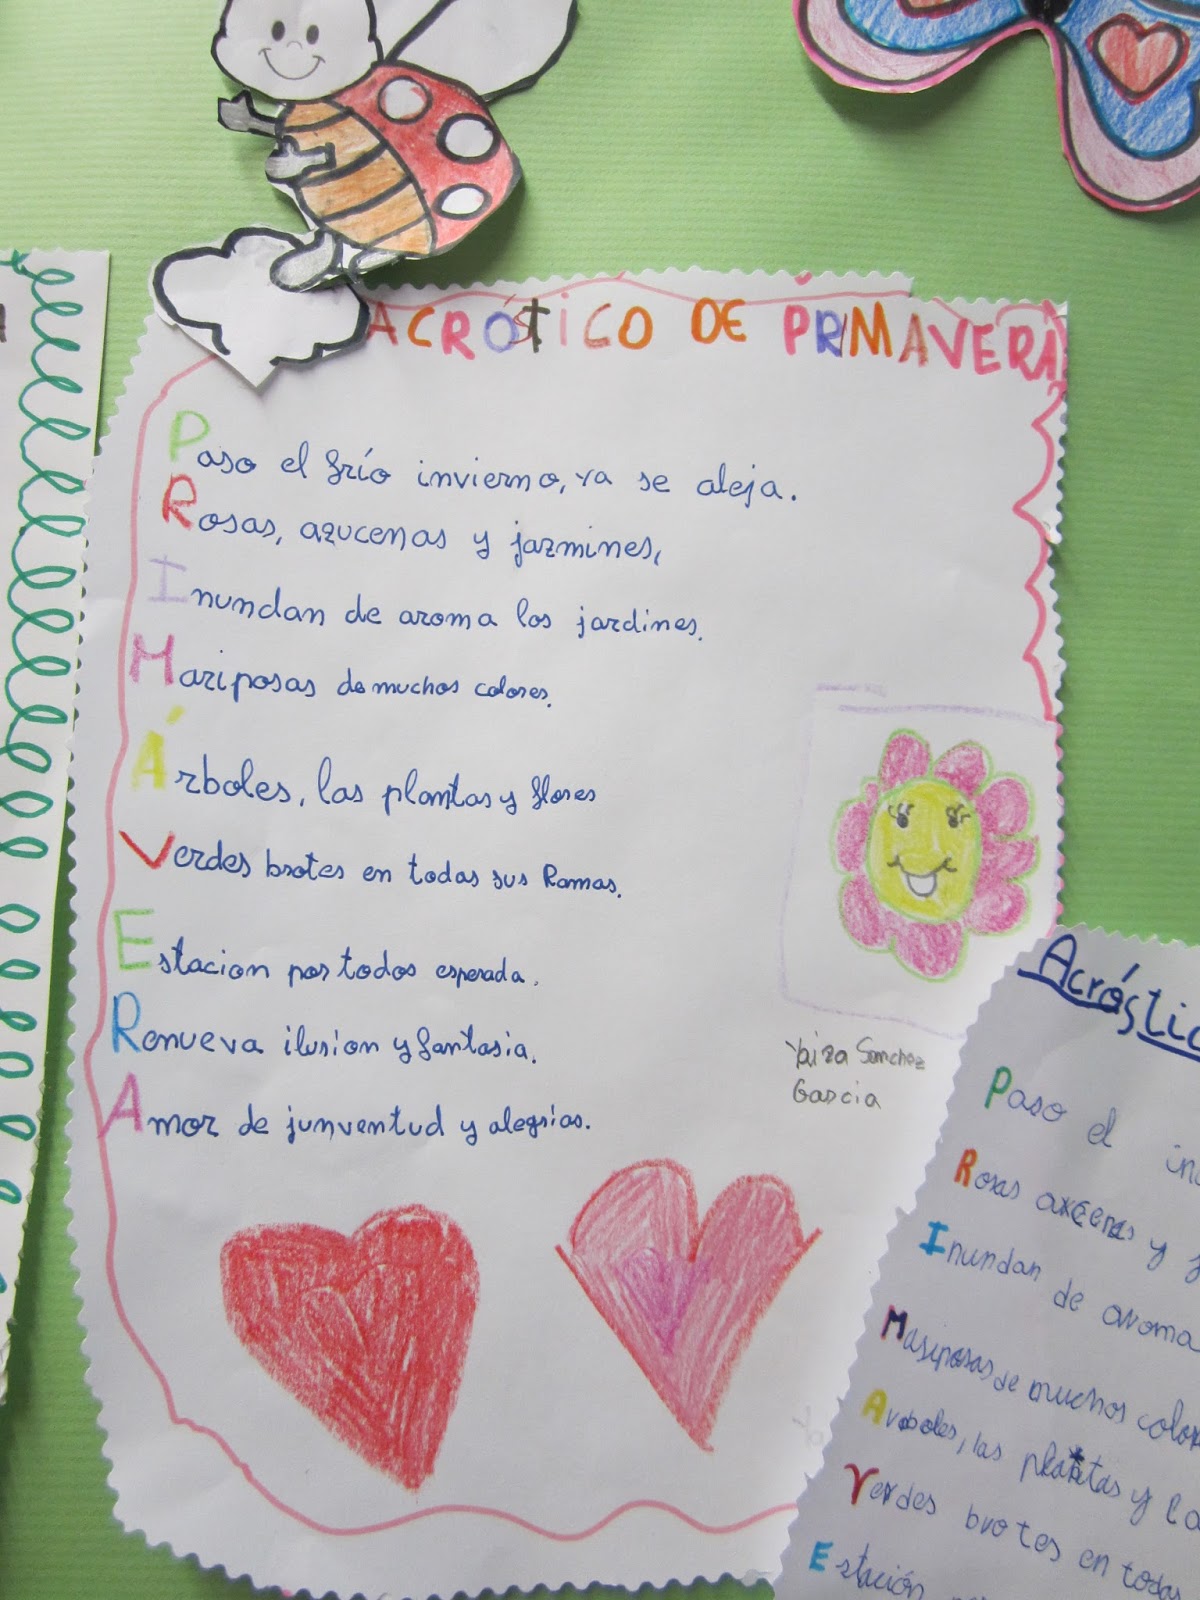 ACRÓSTICO DE PRIMAVERA
Paso el frío invierno, ya se aleja.
Rosas, azucenas y jazmines,
Inundan de aroma los jardines.
Mariposas de muchos colores.
Árboles, las plantas y flores
Verdes brotes en todas sus Ramas.
Estacion por todos esperada.
Renueva ilusion y fantasia.
Amor de junventud y alegrias.
Yaiza Sanchez
Garcia
Acróstic
Paso el in
Rosas y
Inundan de aroma
Mariposas de muchos color
Arboles, las plantas y la
Verdes brotes en todas
Estación